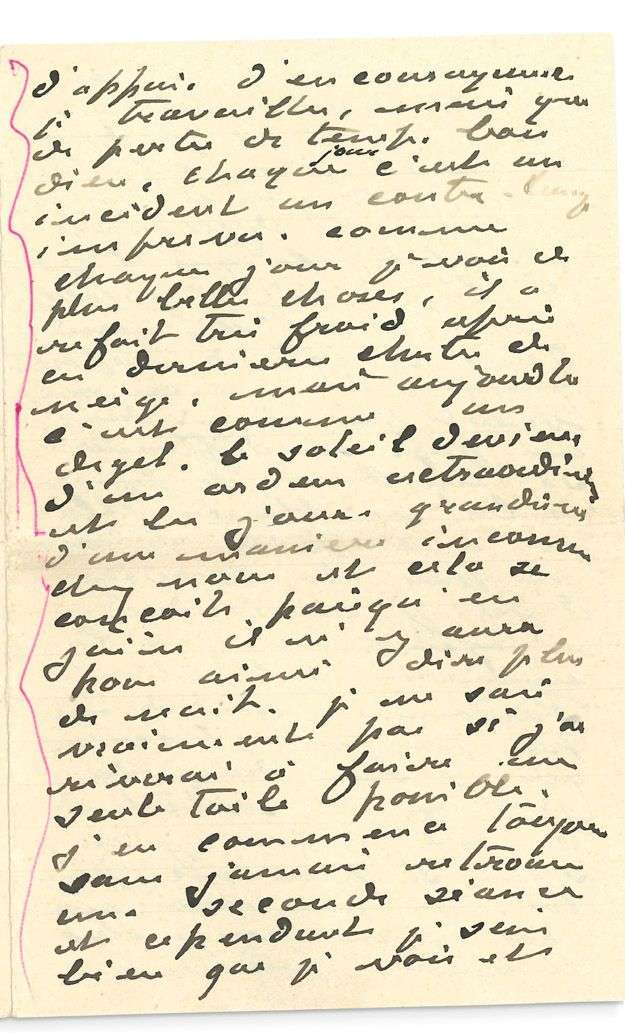 d'appui. d'encouragement
je travaille, mais que
de perte de temps. bon
dieu, chaque jour c'est un
incident un contre-temps
imprévu. comme
chaque jour je vois de
plus belles choses, il a
refait très froid après
ces dernières chutes de
neige. mais aujourd'h
c'est comme un
dégel. le soleil devient
d'un ardeur extraordinaire
et les jours grandissent
d'une manière inconnue
chez nous et cela se
conçoit puisqu'en
juin il n'y aura
pour ainsi dire plus
de nuit. je ne sais
vraiment pas si j'ar
riverai à faire une
seule toile possible.
j'en commence toujours
sans jamais retrouver
une seconde séance
et cependant je sens
bien que je vois et